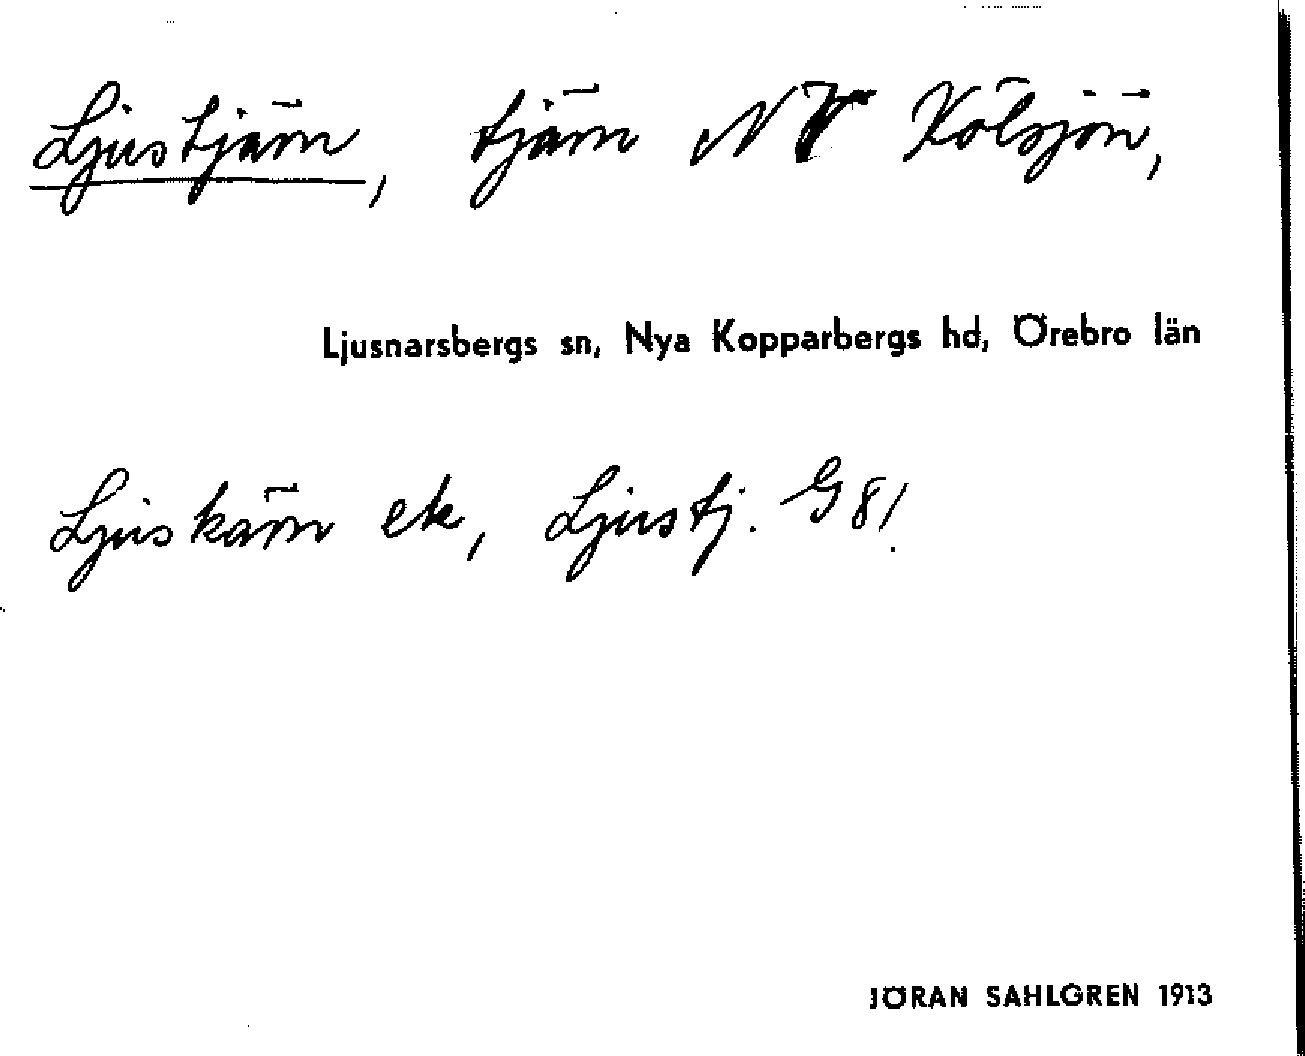 Ljustjärn, tjärn NV Kölsjön,
Ljusnarsbergs sn, Nya Kopparbergs hd, Örebro län
Ljuskärn ek, Ljustj. G 81.
JÖRAN SAHLGREN 1913